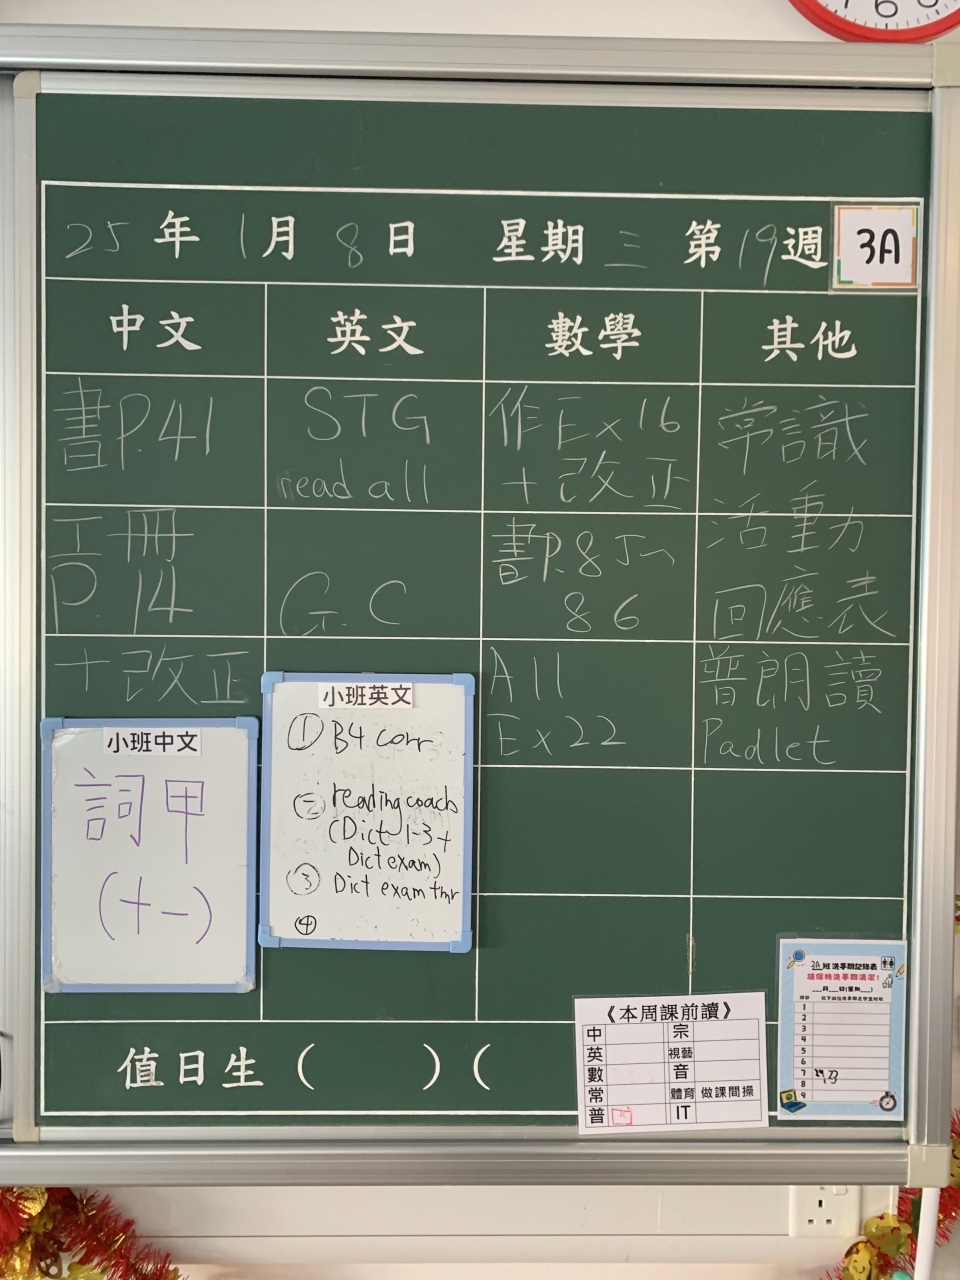 6
25年1月8日 星期三 第19週 3A
中文 英文 數學 其他
書P.41
工冊
P.14
+改正
STG
read all
G.C
作Ex16
+改正
書P.85~
86
All
Ex22
常識
活動
回應表
普朗讀
Padlet
小班中文
詞甲
(十一)
小班英文
① B4 corr
② reading coach
(Dict 1-3 +
Dict exam)
③ Dict exam tmr
④
值日生( )(
《本周課前讀》
中 宗
英 視藝
數 音
常 體育 做課間操
普 IT
3A班洗手間記錄表
請保持洗手間清潔!
__月__日(星期__)
1
2
3
4
5
6
7
8
9